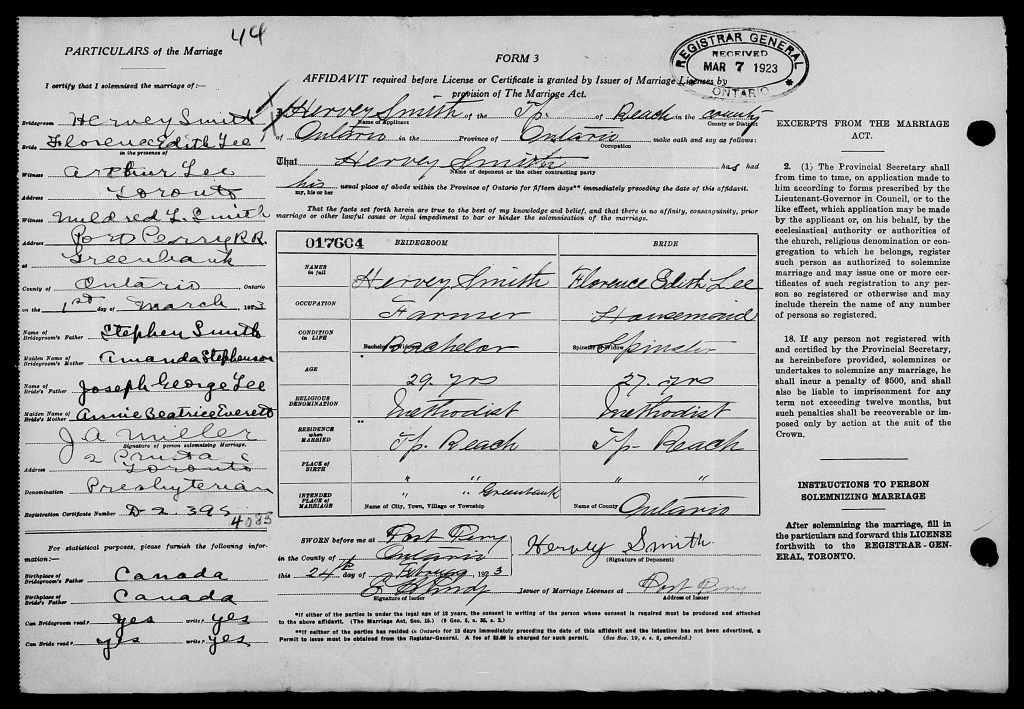 44
PARTICULARS of the Marriage
I certify that I solemnised the marriage of:—
Bridegroom Hervey Smith
Bride Florence Edith Lee
in the presence of
Witness Arthur Lee
Address Toronto
Witness Mildred L. Smith
Address Port Perry R.R.
at Greenbank
County of Ontario, Ontario
on the 1st day of March 1923
Name of Bridegroom's Father Stephen Smith
Maiden Name of Bridegroom's Mother Amanda Stephenson
Name of Bride's Father Joseph George Lee
Maiden Name of Bride's Mother Annie Beatrice Everett
J A Miller
Signature of person solemnizing Marriage.
Address Toronto
Denomination Presbyterian
Registration Certificate Number D 2. 395
4085
For statistical purposes, please furnish the following information:—
Birthplace of Bridegroom's Father Canada
Birthplace of Bride's Father Canada
Can Bridegroom read? yes write? yes
Can Bride read? yes write? yes
FORM 3
AFFIDAVIT required before License or Certificate is granted by Issuer of Marriage Licenses by
provision of The Marriage Act.
REGISTRAR GENERAL
RECEIVED
MAR 7 1923
ONTARIO
I Hervey Smith of the Tp. of Reach in the County
Name of Applicant
County or District
of Ontario in the Province of Ontario make oath and say as follows:
Occupation
That Hervey Smith has had
Name of deponent or the other contracting party
his usual place of abode within the Province of Ontario for fifteen days** immediately preceding the date of this affidavit.
my, his or her
That the facts set forth herein are true to the best of my knowledge and belief, and that there is no affinity, consanguinity, prior
marriage or other lawful cause or legal impediment to bar or hinder the solemnisation of the marriage.
017604 BRIDEGROOM BRIDE
NAMES in full Hervey Smith Florence Edith Lee
OCCUPATION Farmer Housemaid
CONDITION in LIFE Bachelor or Widower Bachelor Spinster or Widow Spinster
AGE 29. yrs 27. yrs
RELIGIOUS DENOMINATION Methodist Methodist
RESIDENCE when MARRIED Tp. Reach Tp. Reach
PLACE of BIRTH " " " "
INTENDED PLACE of MARRIAGE Greenbank Ontario
Name of City, Town, Village or Township Name of County
SWORN before me at Port Perry
in the County of Ontario
this 24th day of February 1923
Signature of Issuer
Hervey Smith
(Signature of Deponent)
Issuer of Marriage Licenses at Port Perry
Address of Issuer
*If either of the parties is under the legal age of 18 years, the consent in writing of the person whose consent is required must be produced and attached
to the above affidavit. (The Marriage Act, Sec. 15.) (9 Geo. 5, c. 35, s. 2.)
**If neither of the parties has resided in Ontario for 15 days immediately preceding the date of this affidavit and the intention has not been advertised, a
Permit to issue must be obtained from the Register-General. A fee of $5.00 is charged for such permit. (See Sec. 19, s. s. 2, amended.)
EXCERPTS FROM THE MARRIAGE
ACT.
2. (1) The Provincial Secretary shall
from time to time, on application made to
him according to forms prescribed by the
Lieutenant-Governor in Council, or to the
like effect, which application may be made
by the applicant or, on his behalf, by the
ecclesiastical authority or authorities of
the church, religious denomination or con-
gregation to which he belongs, register
such person as authorized to solemnize
marriage and may issue one or more cer-
tificates of such registration to any per-
son so registered or otherwise and may
include therein the name of any number
of persons so registered.
18. If any person not registered with
and certified by the Provincial Secretary,
as hereinbefore provided, solemnizes or
undertakes to solemnize any marriage, he
shall incur a penalty of $500, and shall
also be liable to imprisonment for any
term not exceeding twelve months, but
such penalties shall be recoverable or im-
posed only by action at the suit of the
Crown.
INSTRUCTIONS TO PERSON
SOLEMNIZING MARRIAGE
After solemnizing the marriage, fill in
the particulars and forward this LICENSE
forthwith to the REGISTRAR-GEN-
ERAL, TORONTO.